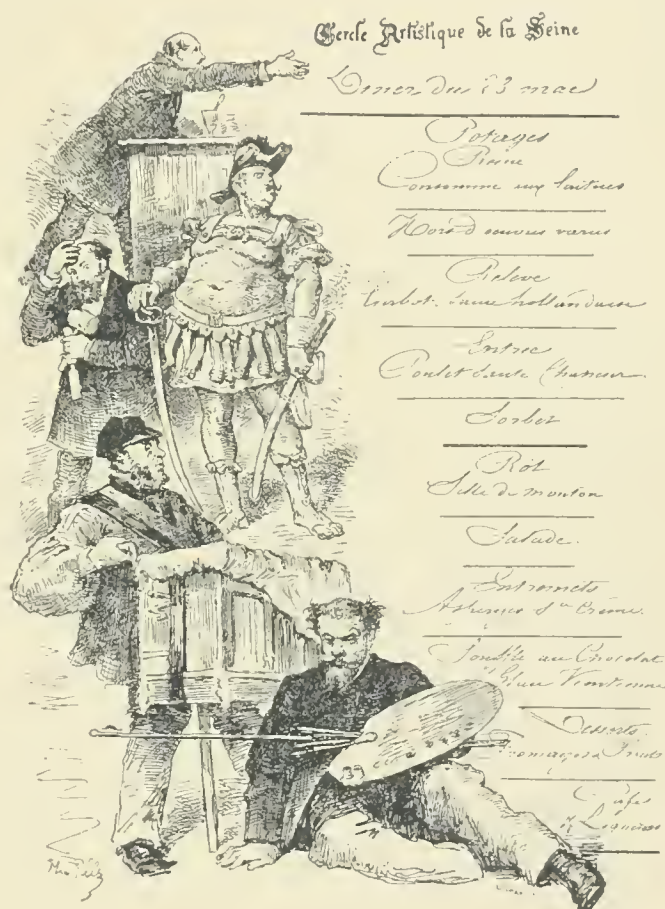 Cercle Artistique de la Seine
Diner du 23 mai
Potages
Reine
Consomme aux laitues
Hors d'oeuvres varies
Releve
Turbot. Sauce hollandaise
Entree
Poulet Saute Chasseur
Sorbet
Rôt
Selle de mouton
Salade.
Entremets
Asperges Sce Crème
Souffle au Chocolat
Glace
Desserts
Fromages & Fruits
Cafes
& Liqueurs